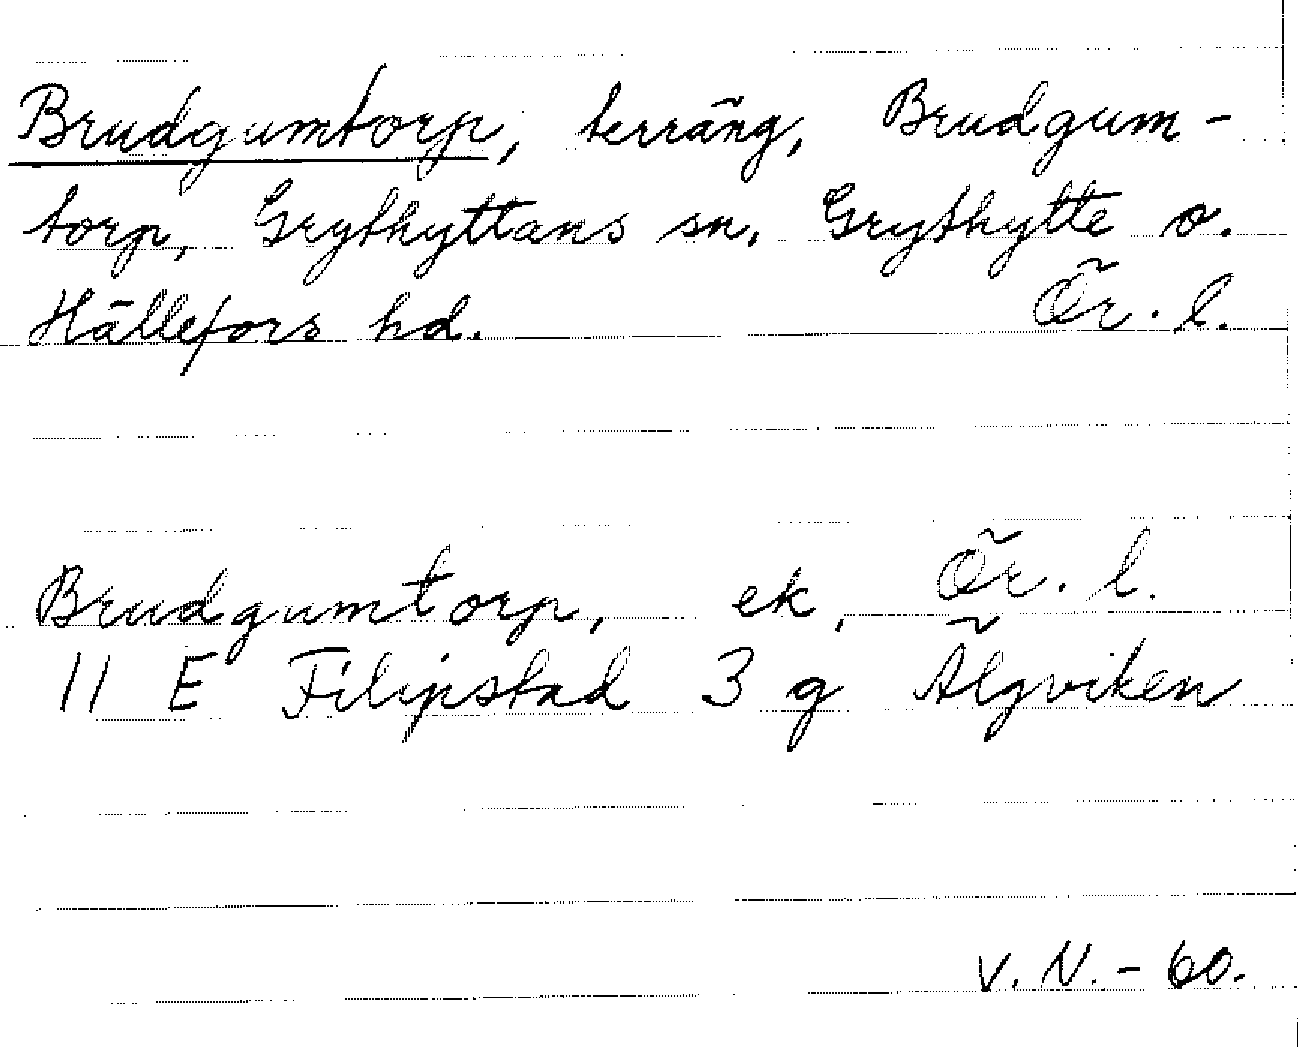 Brudgumtorp, terräng, Brudgum-
torp, Grythyttans sn, Grythytte o.
Hällefors hd. Ör. l.
Brudgumtorp, ek, Ör. l.
11 E Filipstad 3 g Älgviken
V. N. - 60.